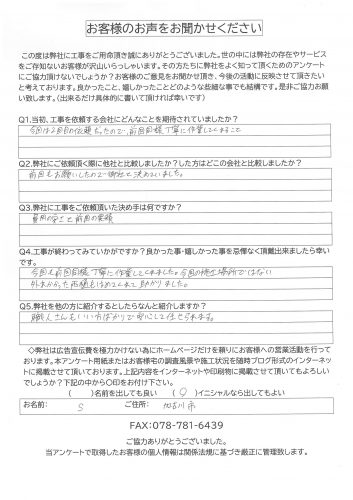 お客様のお声をお聞かせください
この度は弊社に工事をご用命頂き誠にありがとうございました。世の中には弊社の存在やサービス
をご存知ないお客様が沢山いらっしゃいます。その方たちに弊社をよく知って頂くためのアンケート
にご協力頂けないでしょうか?お客様のご意見をお聞かせ頂き、今後の活動に反映させて頂きたい
と考えております。良かったこと、嬉しかったことどのような些細な事でも結構です。是非ご協力お願
い致します。(出来るだけ具体的に書いて頂ければ幸いです)
Q1.当初、工事を依頼する会社にどんなことを期待されていましたか?
今回は2回目の依頼だったので、前回同様丁寧に作業してくれること
Q2.弊社にご依頼頂く際に他社と比較しましたか?した方はどこの会社と比較しましたか?
前回もお願いしたので御社に決めていました。
Q3.弊社に工事をご依頼頂いた決め手は何ですか?
費用の安さと前回の実績
Q4.工事が終わってみていかがですか?良かった事・嬉しかった事を忌憚なく頂戴出来ましたら幸い
です。
今回も前回同様丁寧に作業してくれました。今回の施工場所ではない
外れかかった雨樋もはめてくれて助かりました。
Q5.弊社を他の方に紹介するとしたらなんと紹介しますか?
職人さんもいい方ばかりで安心して任せられます。
◇弊社は広告宣伝費を極力かけない為にホームページだけを頼りにお客様への営業活動を行って
おります。本アンケート用紙またはお客様宅の調査風景や施工状況を随時ブログ形式のインターネッ
トに掲載させて頂いております。上記内容をインターネットや印刷物に掲載させて頂いてもよろしい
でしょうか?下記の中から○印をお付け下さい。
( )名前を出しても良い (○)イニシャルなら出してもよい
お名前: S ご住所: 加古川市
FAX:078-781-6439
ご協力ありがとうございました。
当アンケートで取得したお客様の個人情報は関係法規に基づき厳正に管理致します。